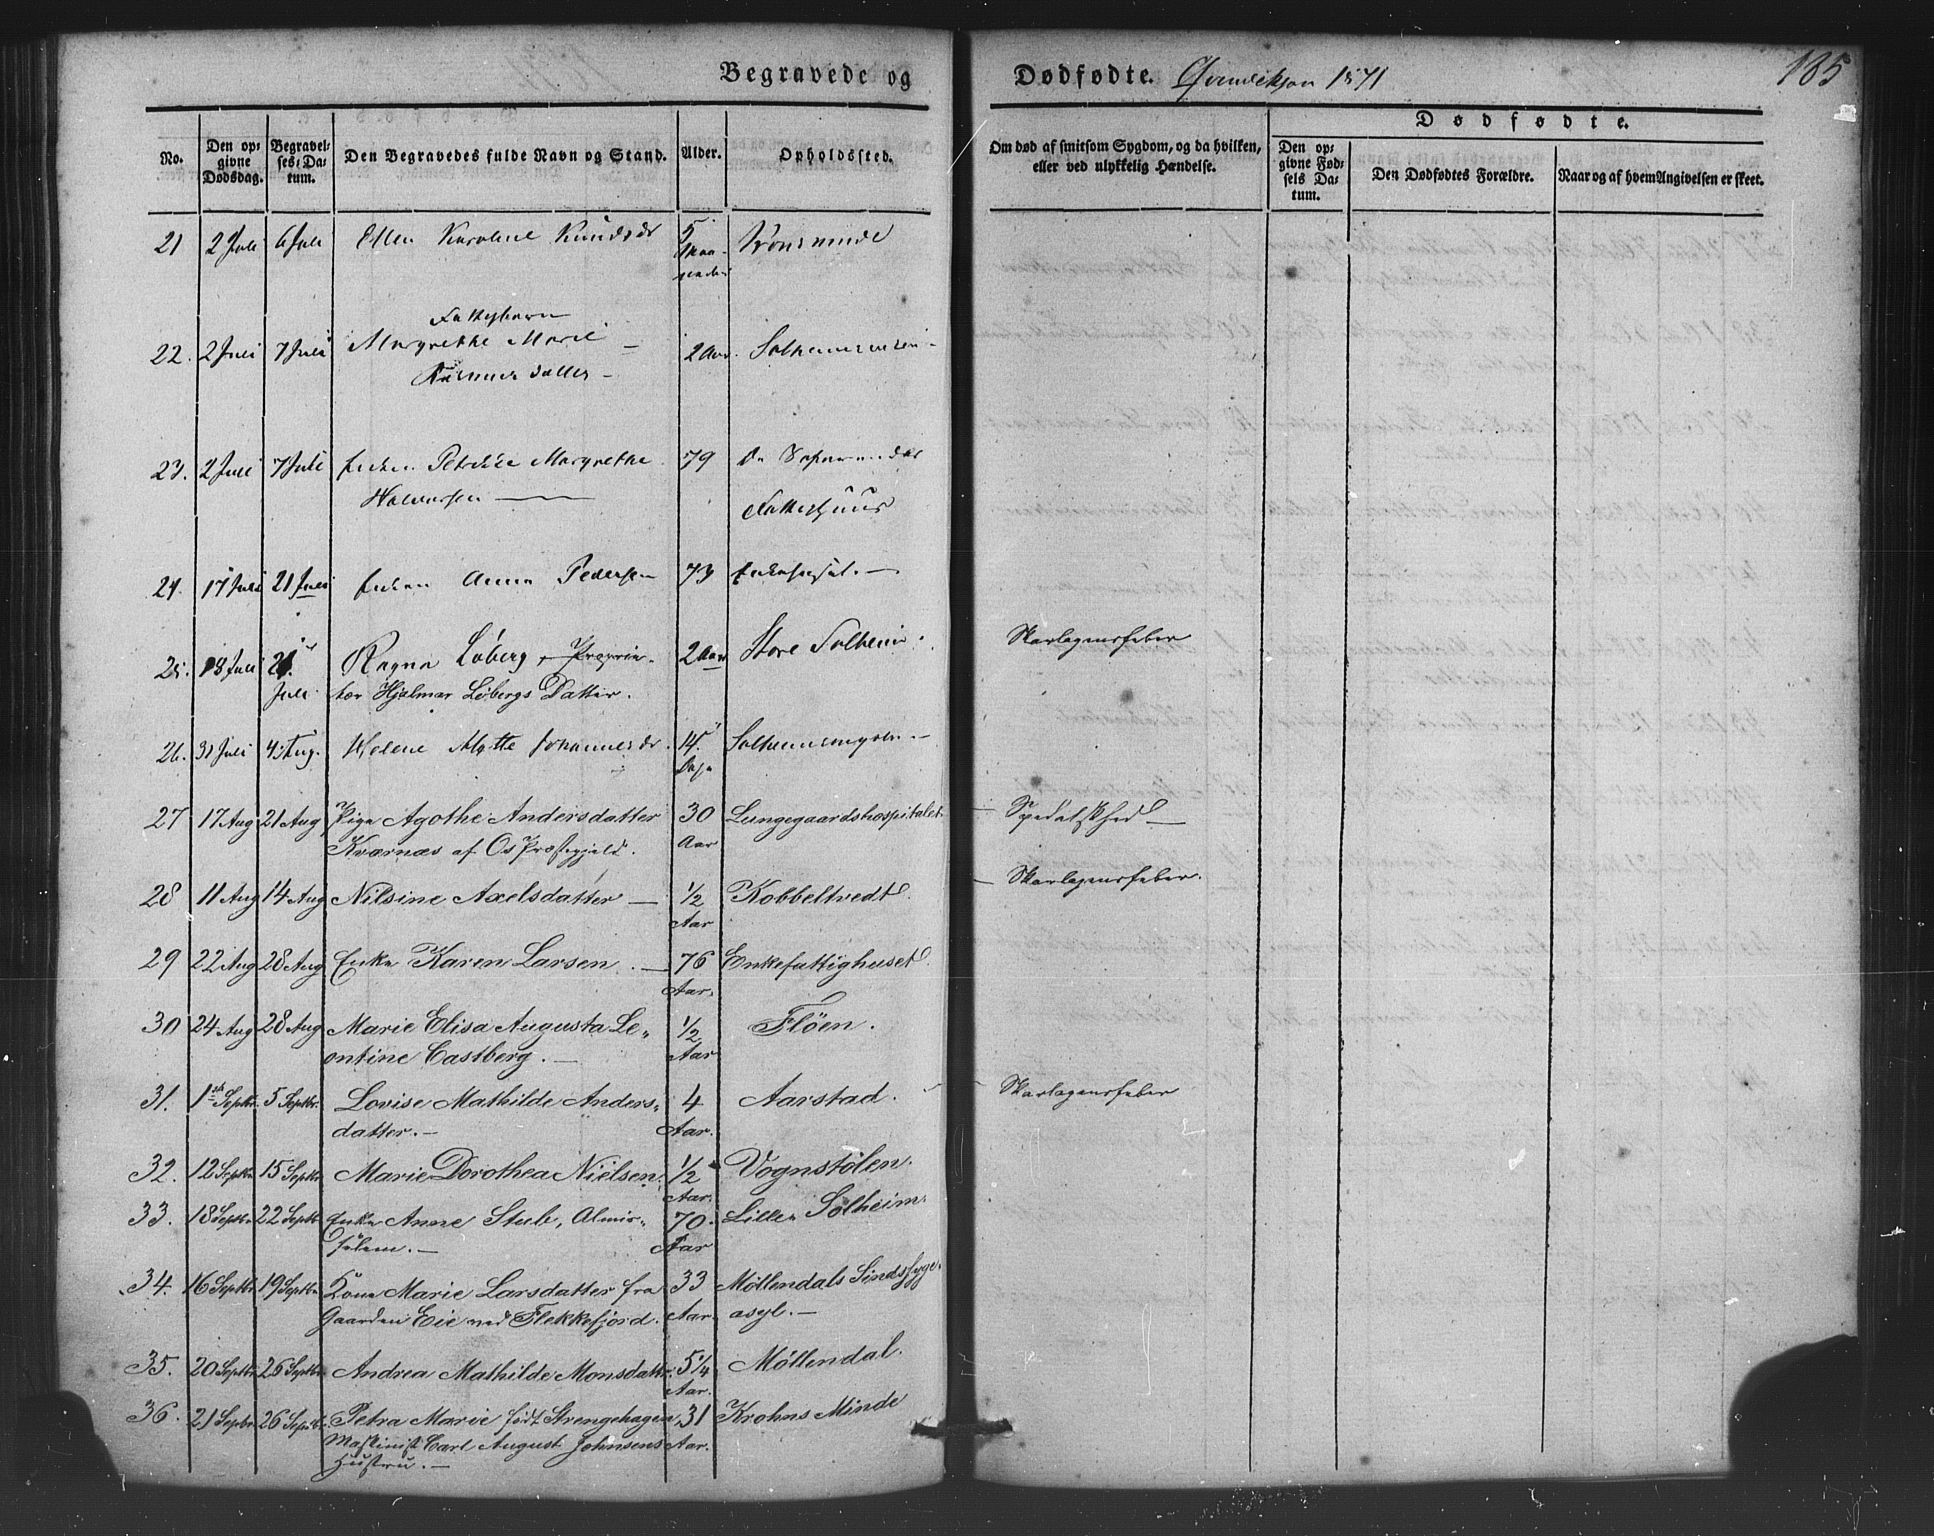 Begravede og Dødfødte. Qvindekjøn 1871 185
No. Den opgivne Dødsdag. Begravelses-Datum. Den Begravedes fulde Navn og Stand. Alder. Opholdssted. Om død af smitsom Sygdom, og da hvilken, eller ved ulykkelig Hændelse. Dødfødte. Den opgivne Fødsels Datum. Den Dødfødtes Forældre. Naar og af hvem Angivelsen er skeet.
21 2 Juli 6 Juli Ellen Karoline Knudsdr 5
Maaneder
Fattigbarn
22. 2 Juli 7 Juli Margrethe Marie 2 Aar. Solheimsveien
Rasmusdatter
23. 2 Juli 7 Juli Enken Petrikke Margrethe 79
Halversen Fattighuus
24. 17 Juli 21 Juli Enken Anna Pedersen 73
25. 18 Juli 21. Ragna Løberg, Proprie- 2 Aar Store Solheim. Skarlagensfeber
Juli. tær Hjalmar Løbergs Datter.
26. 31 Juli 4 Aug. Helene Mette Johannesdr. 14
Dage
27 17 Aug 21 Aug Pige Agothe Andersdatter 30 Lungegaardshospitalet Spedalskhed
Kværnæs af Os Præstegjeld. Aar
28 11 Aug 14 Aug Nilsine Axelsdatter 1/2 Kobbeltvedt. Skarlagensfeber.
Aar
29 22 Aug 28 Aug Enke Karen Larsen. 76 Enkefattighuset.
Aar.
30 24 Aug 28 Aug Marie Elisa Augusta Le- 1/2 Fløen.
ontine Castberg. Aar
31. 1ste Septbr. 5 Septbr. Lovise Mathilde Anders- 4 Aarstad. Skarlagensfeber
datter. Aar.
32. 12 Septbr 15 Septbr Marie Dorothea Nielsen. 1/2 Vognstølen.
Aar.
33. 18 Septbr 22 Septbr Enke Anne Stub, Almis- 70. Lille Solheim.
sølem. Aar
34. 16 Septbr 19 Septbr Kone Marie Larsdatter fra 33 Møllendals Sindssyge-
Gaarden Eie ved Flekkefjord. Aar. asyl.
35. 20 Septbr 26 Septbr Andrea Mathilde Monsdattr. 5 1/4 Møllendal.
Aar.
36. 21 Septbr 26 Septbr. Petra Marie født Strengehagen, 31 Krohns Minde
Maskinist Carl August Johnsens Aar.
Hustru.